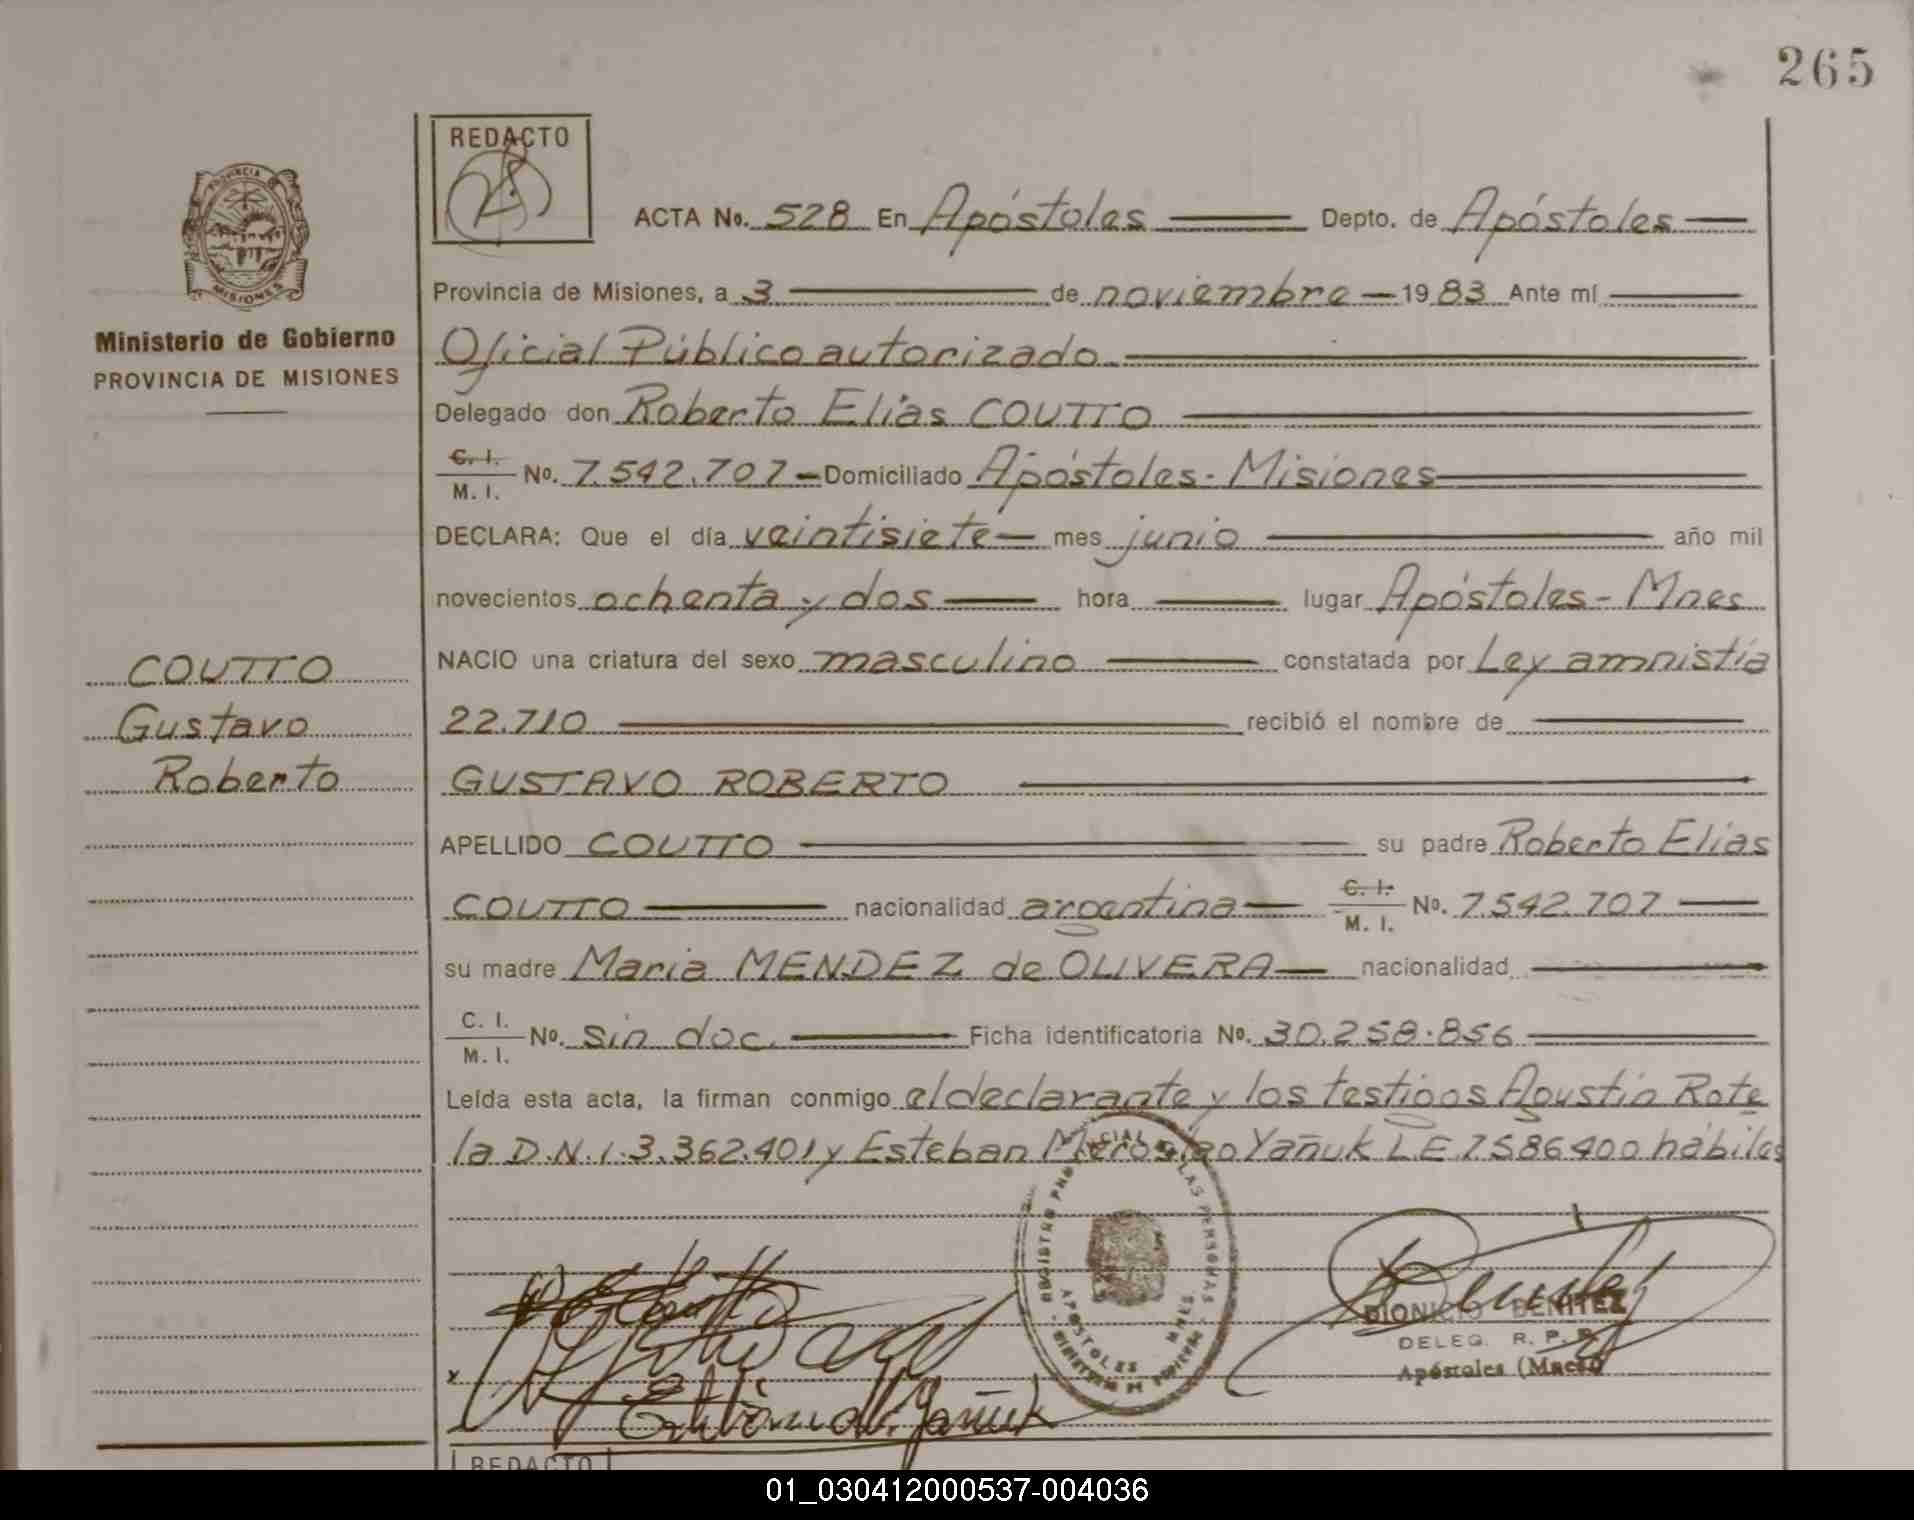 265
REDACTO
ACTA No. 528 En Apóstoles Depto. de Apóstoles
PROVINCIA
MISIONES
Provincia de Misiones, a 3 de noviembre 1983 Ante mí
Ministerio de Gobierno
PROVINCIA DE MISIONES
Oficial Público autorizado
Delegado don Roberto Elias COUTTO
C. I.
M. I. No. 7.542.707 Domiciliado Apóstoles - Misiones
DECLARA: Que el día veintisiete mes junio año mil
novecientos ochenta y dos hora lugar Apóstoles - Mnes
NACIO una criatura del sexo masculino constatada por Ley amnistía
COUTTO
Gustavo
Roberto
22.710 recibió el nombre de
GUSTAVO ROBERTO
APELLIDO COUTTO su padre Roberto Elias
COUTTO nacionalidad argentina C. I.
M. I. No. 7.542.707
su madre Maria MENDEZ de OLIVERA nacionalidad
C. I.
M. I. No. sin doc. Ficha identificatoria No. 30.258.856
Leída esta acta, la firman conmigo el declarante y los testigos Agustín Rote
la D.N.I. 3.362.401 y Esteban Yañuk L.E. 7586400 hábiles
REGISTRO PROVINCIAL DE LAS PERSONAS
APOSTOLES MNES.
DIONICIO BENITEZ
DELEG. R. P. P.
Apóstoles (Mnes)
REDACTO
01_030412000537-004036